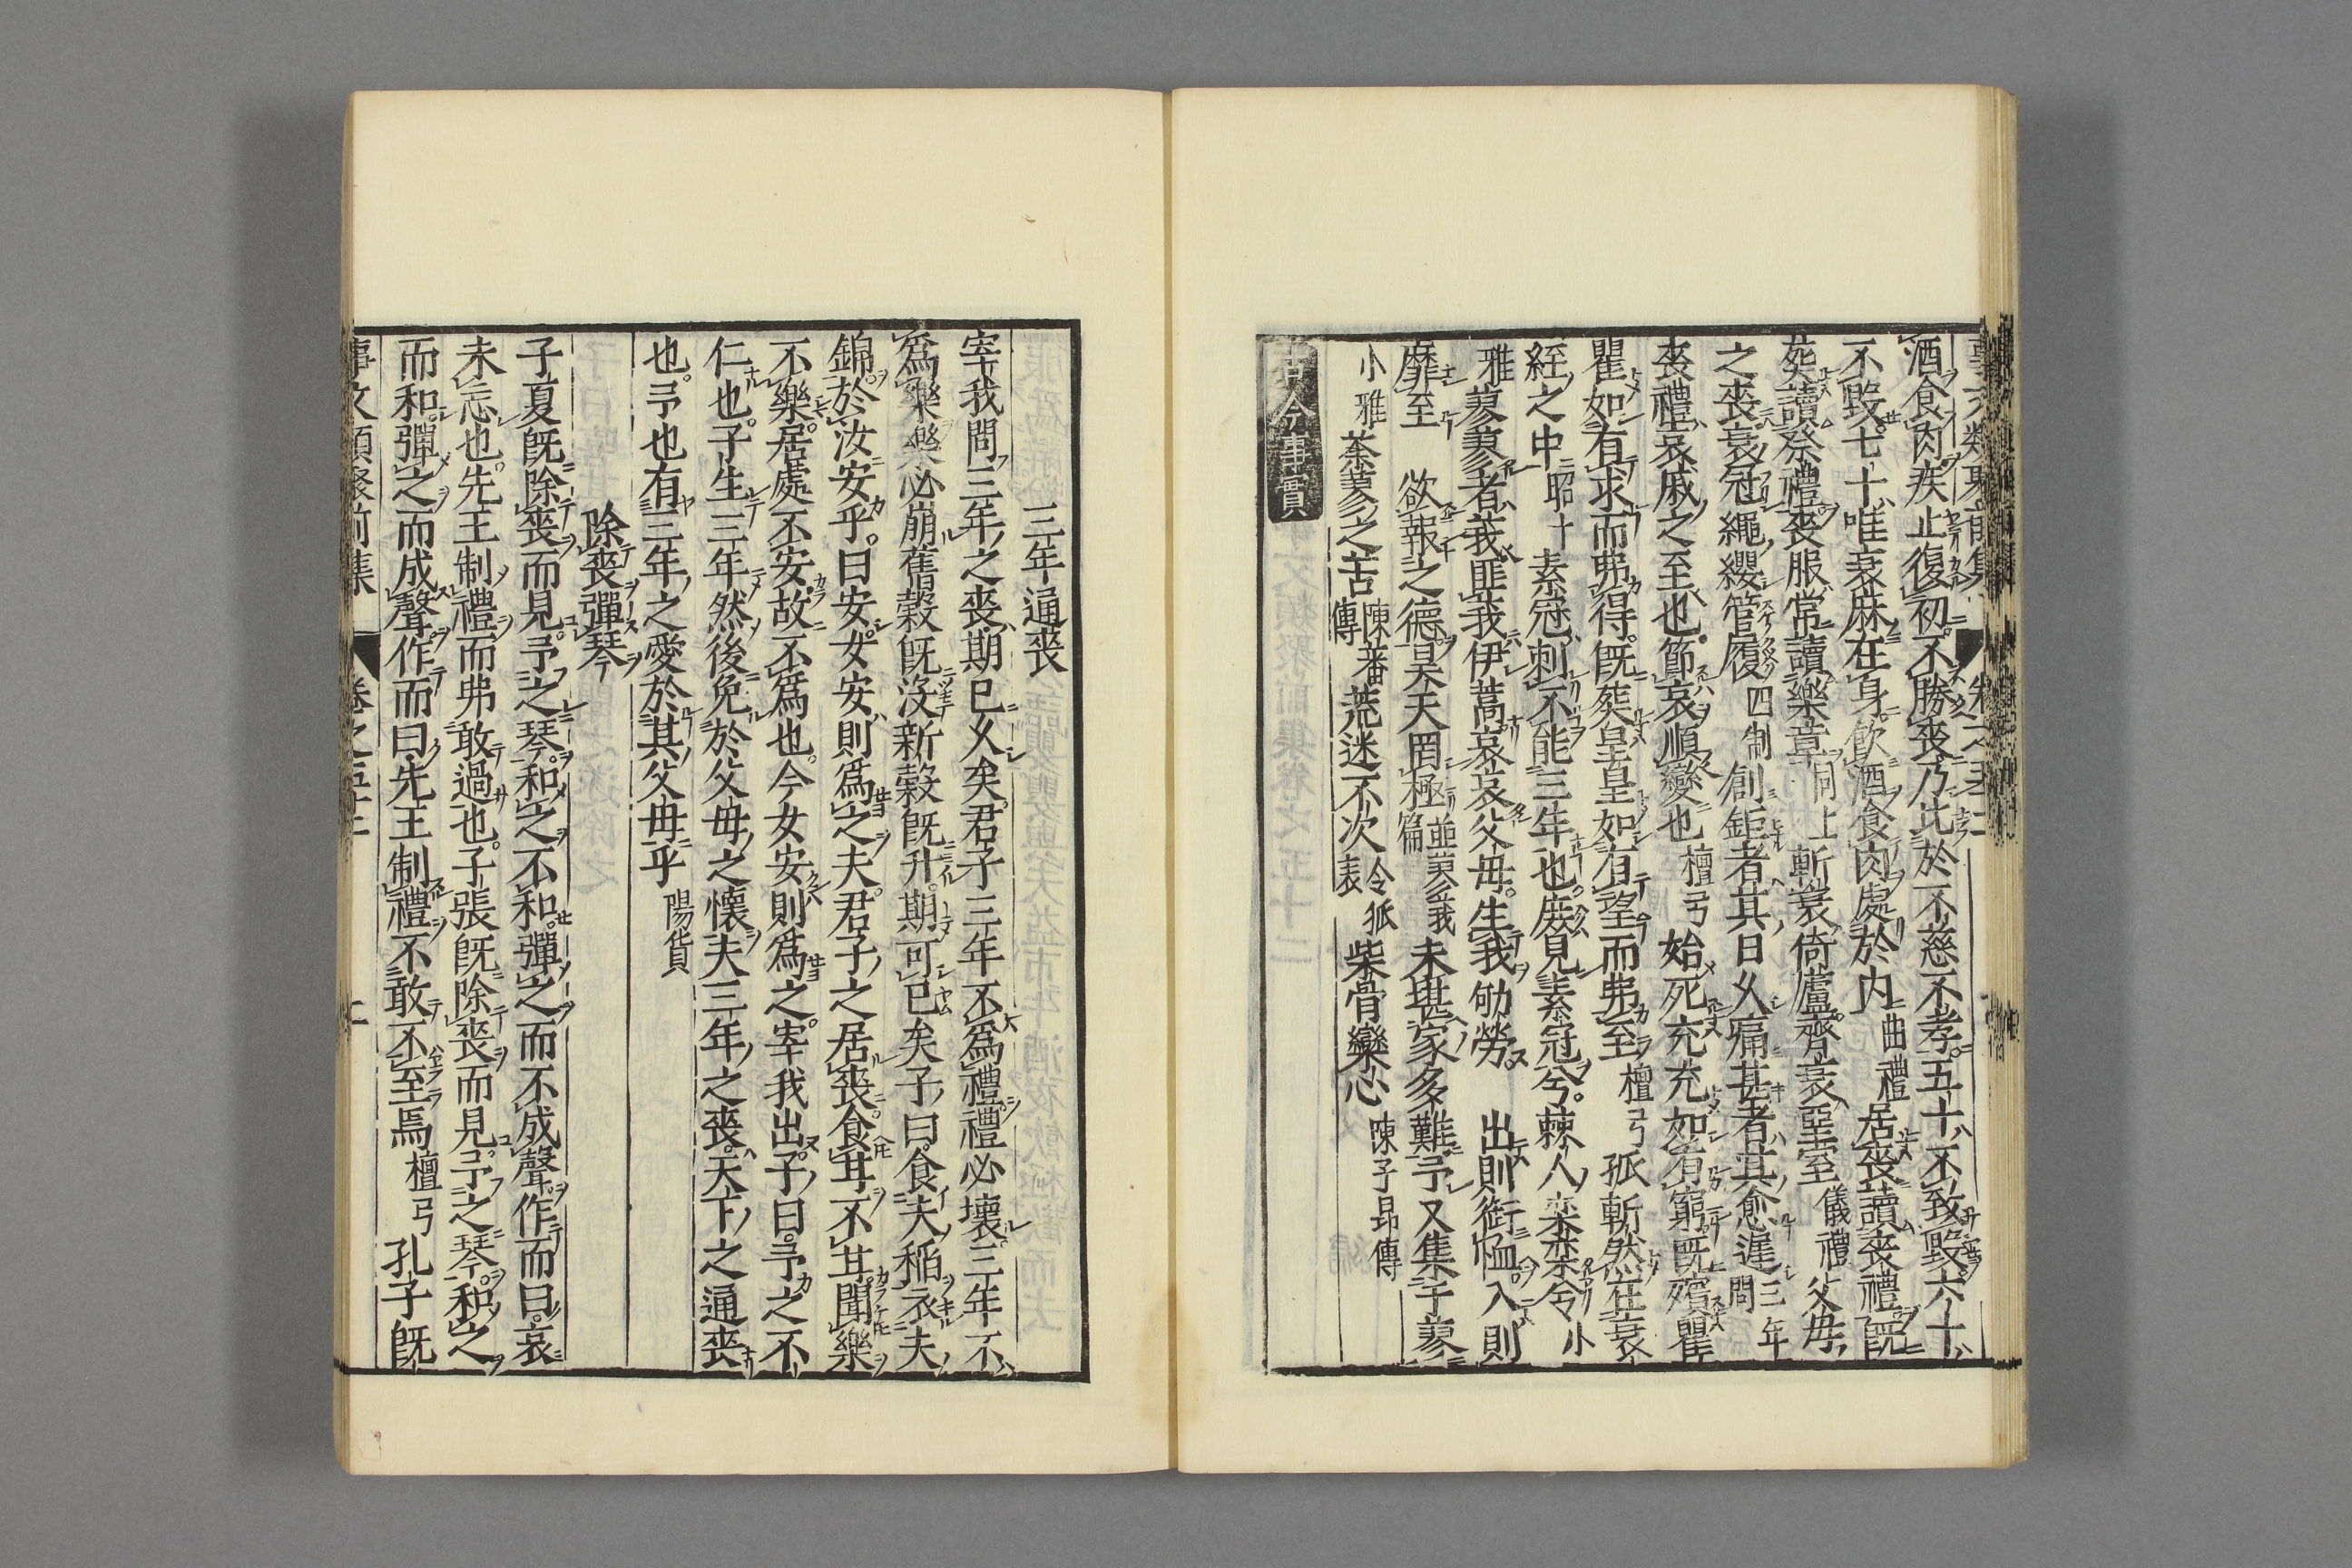 酒食肉疾止復初不勝喪乃比於不慈不孝五十不致毀六十
不毀七十唯衰麻在身飲酒食肉處於内曲禮居喪讀喪禮既
葬讀祭禮喪服常讀樂章同上斬衰倚廬齊衰堊室儀禮父母
之喪衰冠繩纓管履四制創鉅者其日乆痛甚者其愈遲三年問
喪禮哀戚之至也節哀順變也檀弓始死充充如有窮既殯瞿
瞿如有求而弗得既葬皇皇如有望而弗至檀弓孤斬然在衰
絰之中昭十素冠刺不能三年也庶見素冠兮棘人欒欒兮小
雅蓼蓼者莪匪莪伊蒿哀哀父母生我劬勞出則銜恤入則
靡至欲報之德昊天罔極並蓼莪篇未堪家多難予又集于蓼
小雅荼蓼之苦陳蕃傳荒迷不次令狐表柴骨欒心陳子昻傳
古今事實
三年通喪
宰我問三年之喪期已乆矣君子三年不爲禮禮必壞三年不
爲樂樂必崩舊榖既没新榖既升期可已矣子曰食夫稻衣夫
錦於汝安乎曰安女安則爲之夫君子之居喪食㫖不甘聞樂
不樂居處不安故不爲也今女安則爲之宰我出子曰予之不
仁也子生三年然後免於父母之懷夫三年之喪天下之通喪
也予也有三年之愛於其父母乎陽貨
除喪彈琴
子夏既除喪而見予之琴和之不和彈之而不成聲作而曰哀
未忘也先王制禮而弗敢過也子張既除喪而見予之琴和之
而和彈之而成聲作而曰先王制禮不敢不至焉檀弓孔子既
事文類聚前集 卷之五十二